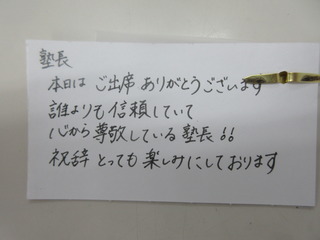 塾長
本日は ご出席 ありがとうございます
誰よりも 信頼していて
心から 尊敬している 塾長！！
祝辞 とっても 楽しみにしております